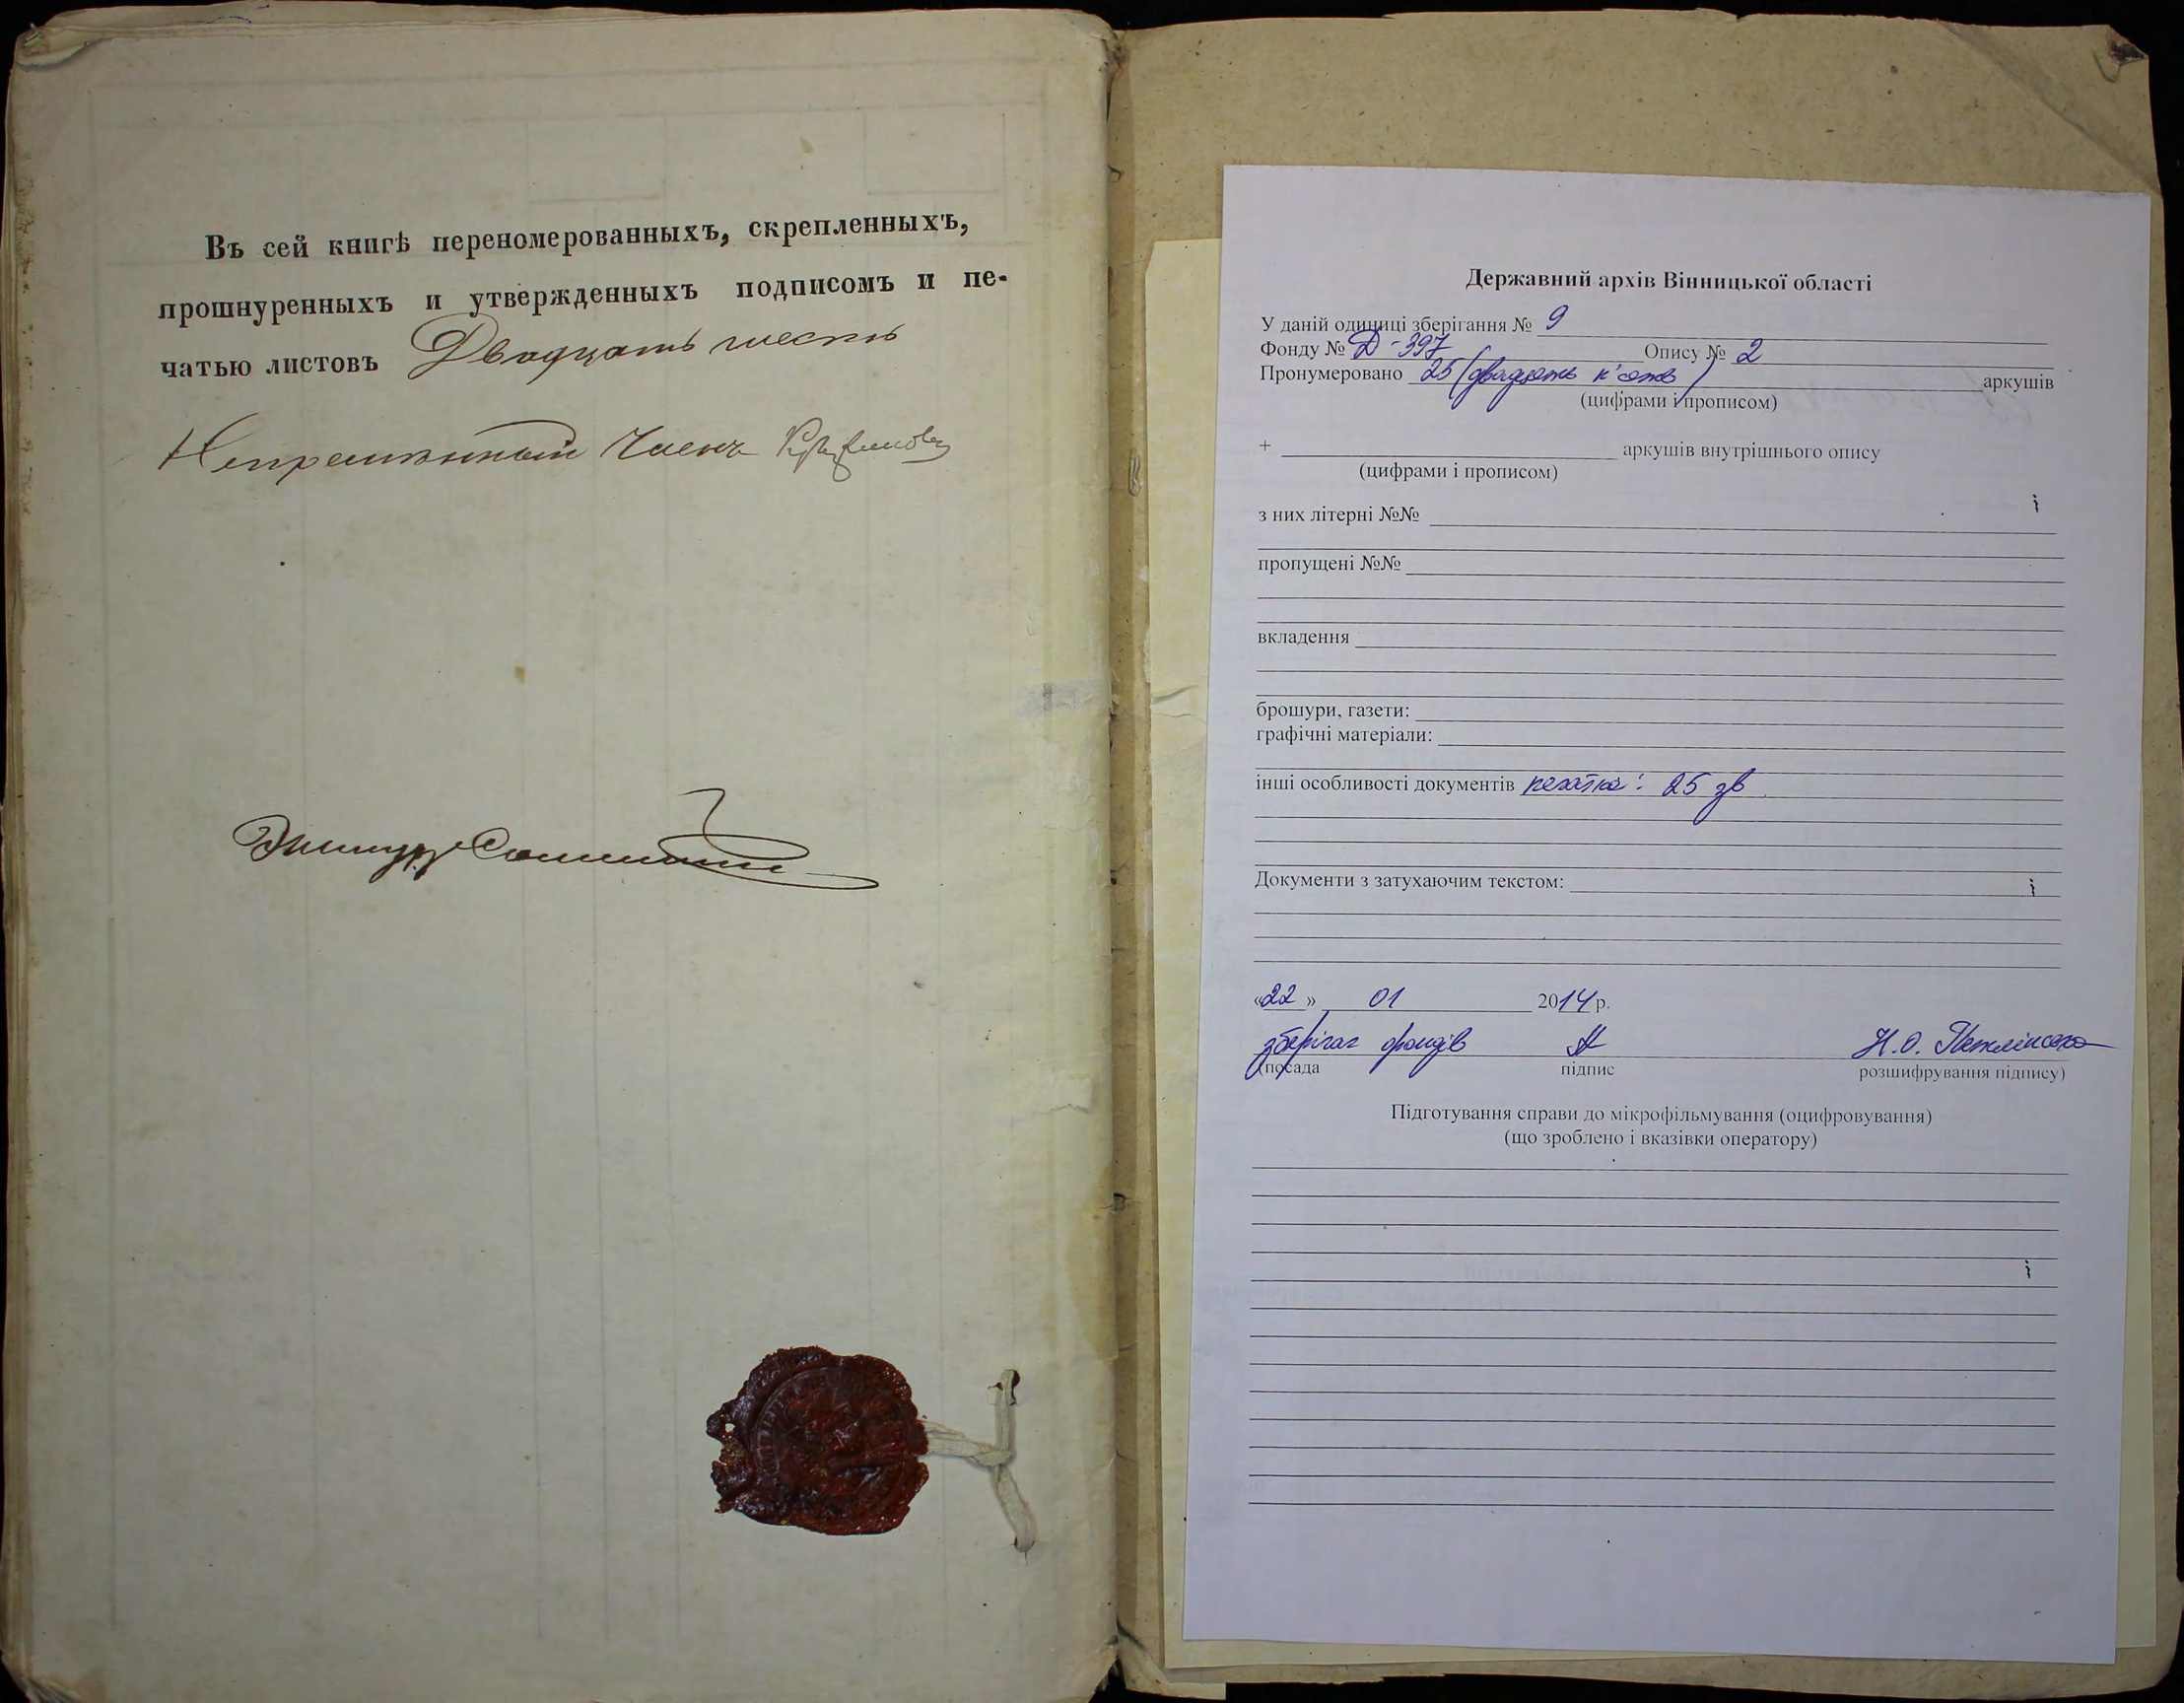 Въ сей книгѣ переномерованныхъ, скрепленныхъ,
прошнуренныхъ и утвержденныхъ подписомъ и пе-
чатью листовъ Двадцать шесть
Непремѣнный Членъ
Державний архів Вінницької області
У даній одиниці зберігання № 9
Фонду № Д-397 Опису № 2
Пронумеровано 25 (двадцять п'ять) аркушів
(цифрами і прописом)
+ аркушів внутрішнього опису
(цифрами і прописом)
з них літерні №№
пропущені №№
вкладення
брошури, газети:
графічні матеріали:
інші особливості документів печатка: 25 зв
Документи з затухаючим текстом:
«22» 01 2014 р.
зберігач фондів Н.О.
(посада підпис розшифрування підпису)
Підготування справи до мікрофільмування (оцифровування)
(що зроблено і вказівки оператору)